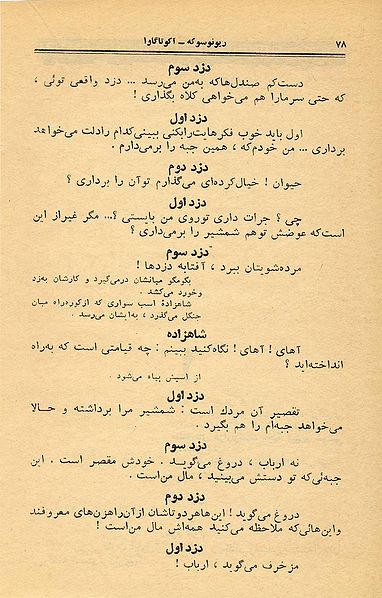 ۷۸
ریونوسوکه – آکوتاگاوا
دزد سوم
دست‌کم صندل‌هاکه به‌من می‌رسد ... دزد واقعی توئی ،
که حتی سرمارا هم می‌خواهی کلاه بگذاری !
دزد اول
اول باید خوب فکرهایت‌رابکنی ببینی‌کدام رادلت می‌خواهد
برداری ... من خودم‌که ، همین جبه را برمی‌دارم .
دزد دوم
حیوان ! خیال‌کرده‌ای می‌گذارم تو‌آن را برداری ؟
دزد اول
چی ؟ جرات داری توروی من بایستی ؟... مگر غیراز این
است‌که عوضش توهم شمشیر را برمی‌داری ؟
دزد سوم
مرده‌شویتان ببرد ، آفتابه دزدها !
بگومگو میانشان درمی‌گیرد و کارشان به‌زد
وخورد می‌کشد .
شاهزادهٔ اسب سواری که ازکوره‌راه میان
جنگل می‌گذرد ، به‌ایشان می‌رسد .
شاهزاده
آهای ! آهای ! نگاه‌کنید ببینم : چه قیامتی است که به‌راه
انداخته‌اید ؟
از اسبش پیاه می‌شود .
دزد اول
تقصیر آن مردك است : شمشیر مرا برداشته و حالا
می‌خواهد جبه‌ام را هم بگیرد .
دزد سوم
نه ارباب ، دروغ می‌گوید . خودش مقصر است . این
جبه‌ئی‌که تو دستش می‌بینید ، مال من‌است .
دزد دوم
دروغ می‌گوید ! این‌هاهردوتاشان ازآن‌راهزن‌های معروفند
واین‌هائی‌که ملاحظه می‌کنید همه‌اش مال من‌است !
دزد اول
مزخرف می‌گوید ، ارباب !